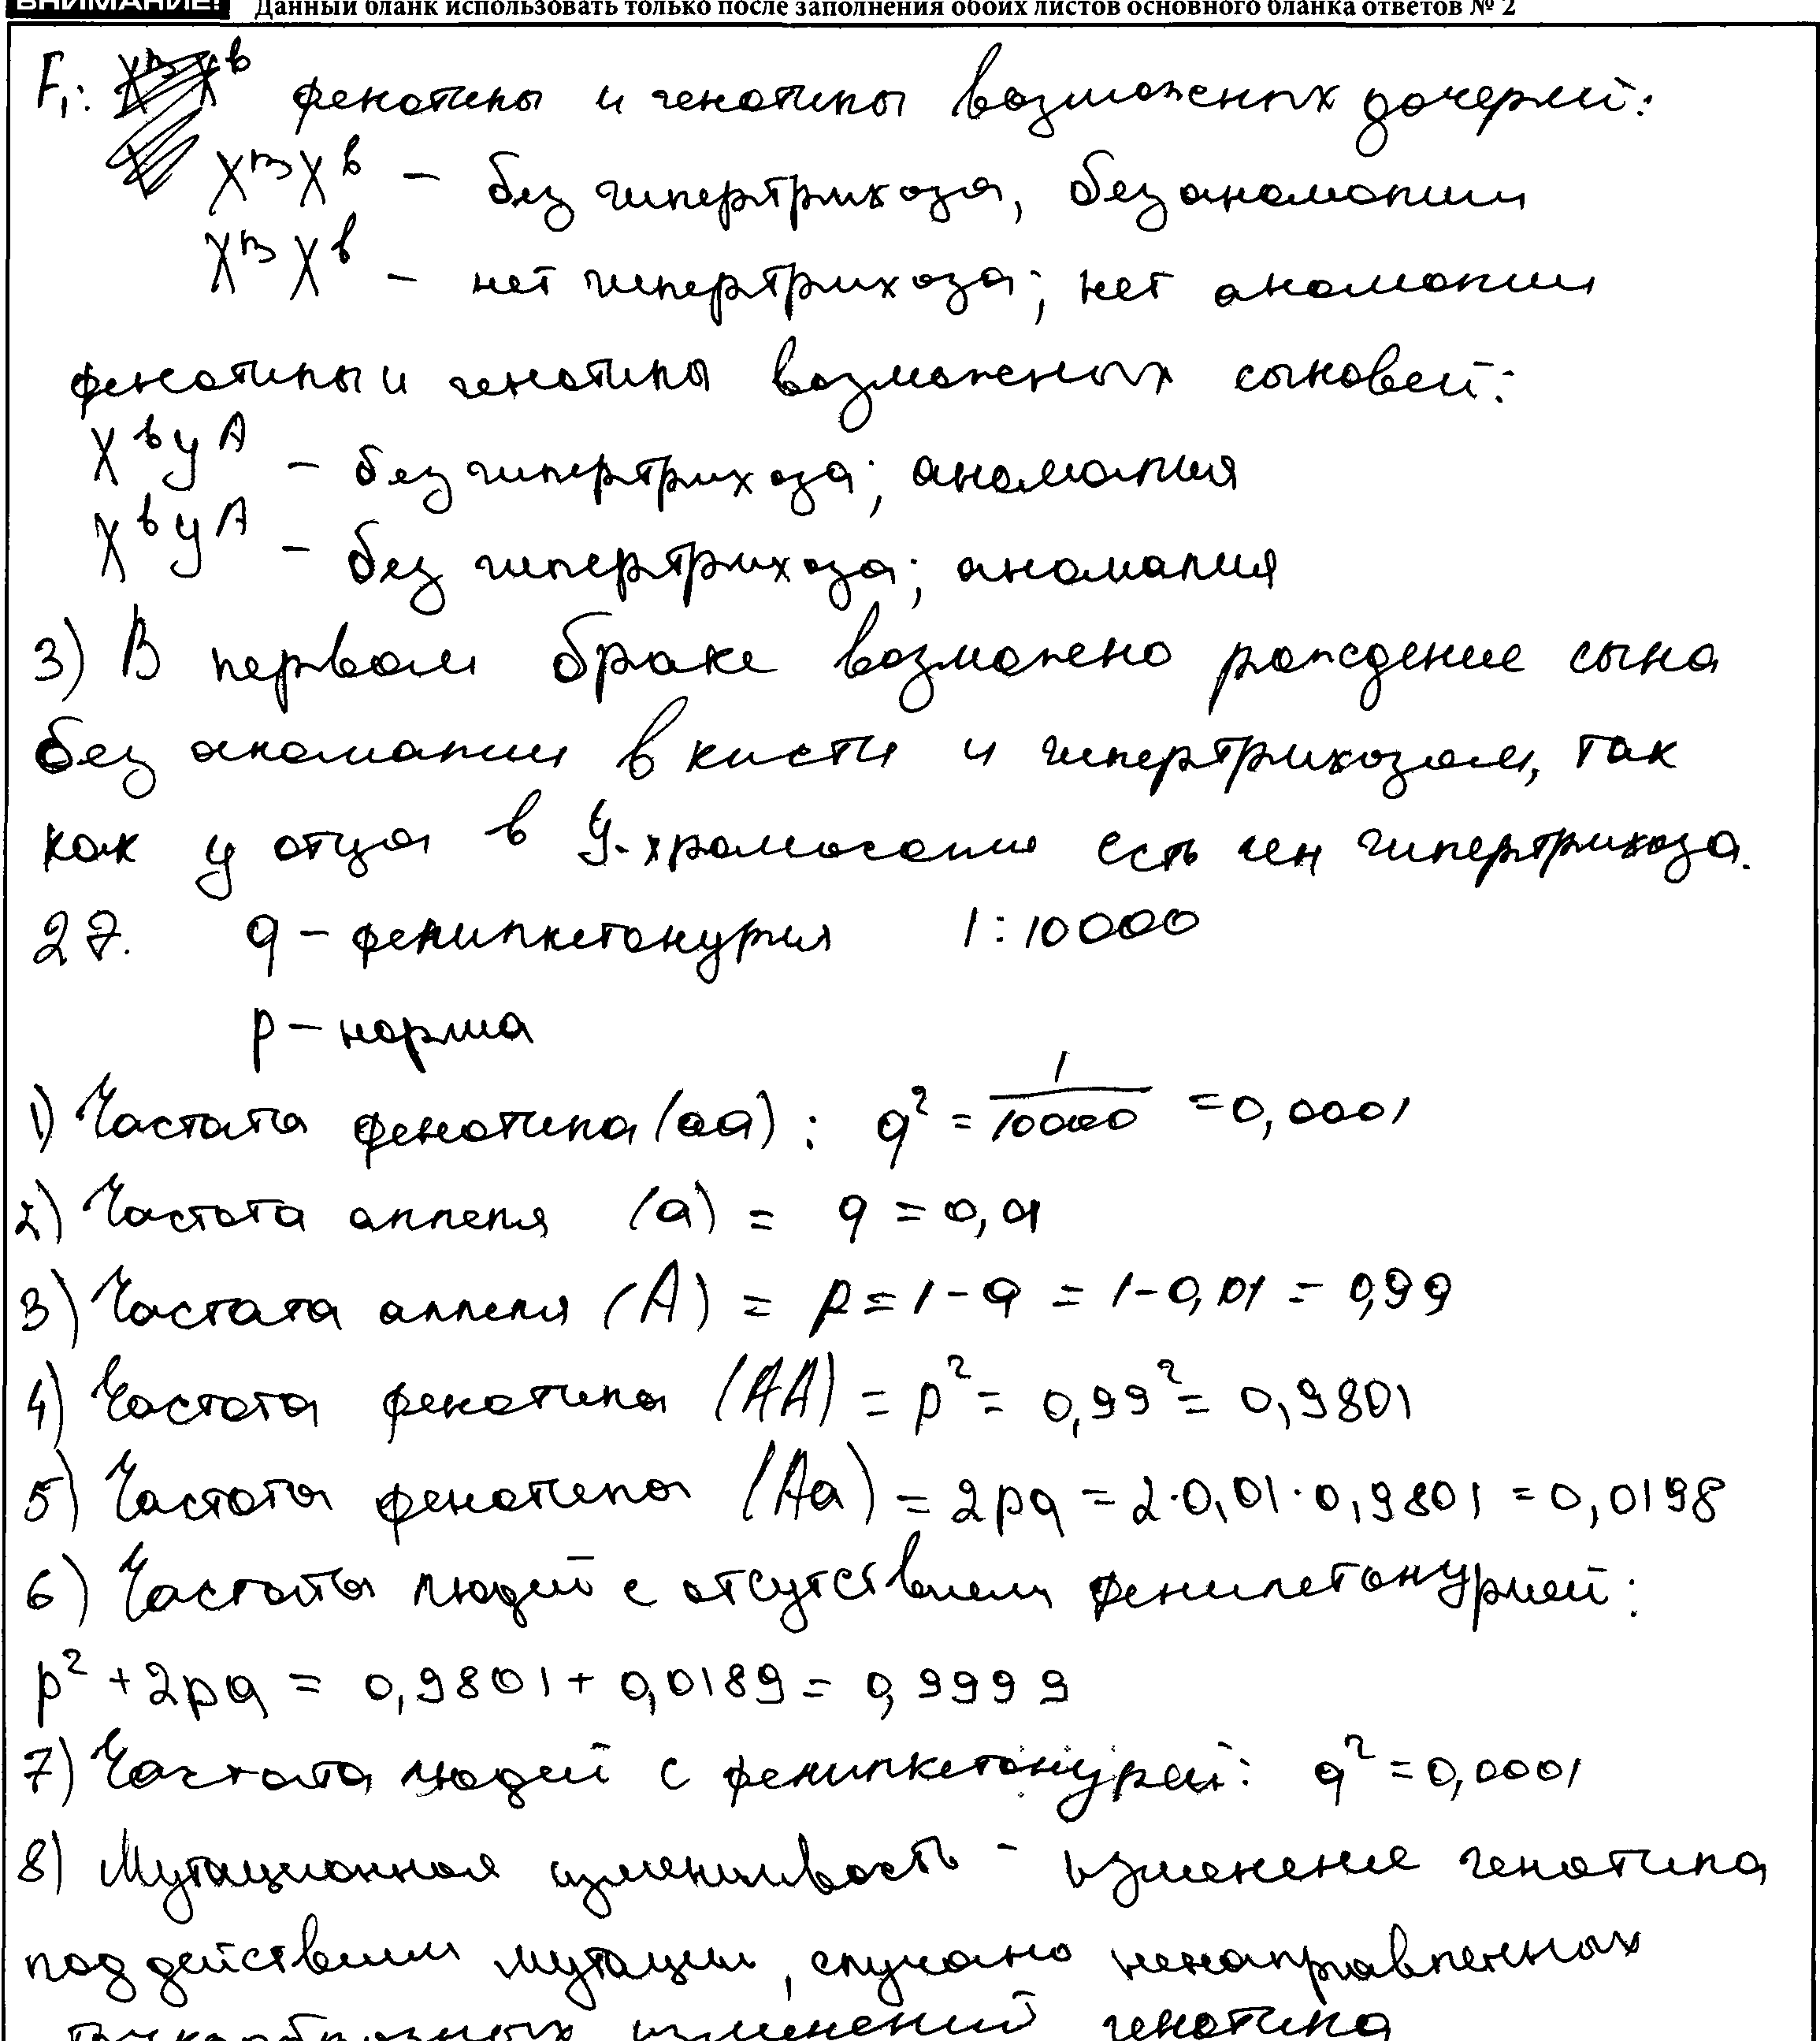 ВНИМАНИЕ! Данный бланк использовать только после заполнения обоих листов основного бланка ответов № 2
F₁: фенотипы и генотипы возможных дочерей:
XᴮXᵇ – без гипертрихоза, без аномалии
XᴮXᵇ – нет гипертрихоза; нет аномалии
фенотипы и генотипы возможных сыновей:
XᵇYᴬ – без гипертрихоза; аномалия
XᵇYᴬ – без гипертрихоза; аномалия
3) В первом браке возможено рождение сына
без аномалии в кисти и гипертрихозом, так
как у отца в Y-хромосоме есть ген гипертрихоза.
27. q – фенилкетонурия 1:10000
p – норма
1) Частота фенотипа (aa): q² = 1/10000 = 0,0001
2) Частота аллеля (a) = q = 0,01
3) Частота аллеля (A) = p = 1 - q = 1 - 0,01 = 0,99
4) Частота фенотипа (AA) = p² = 0,99² = 0,9801
5) Частота фенотипа (Aa) = 2pq = 2·0,01·0,9801 = 0,0198
6) Частота людей с отсутствием фенилетонурией:
p² + 2pq = 0,9801 + 0,0189 = 0,9999
7) Частота людей с фенилкетонурей: q² = 0,0001
8) Мутационная изменивость – изменение генотипа
под действием мутации, случано ненаправленных
изменений генотипа